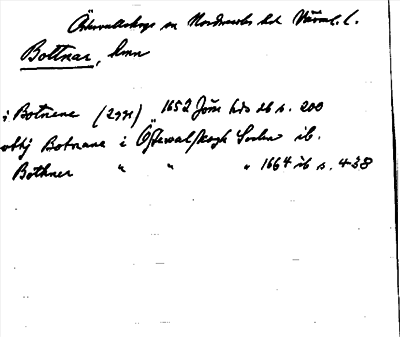 Östervallskogs sn Nordmarks hd Värml. l.
Bottnar, hmn
i Botnene (2 st) 1652 Jöns hds db s. 200
obj Botnane i Östewalskogh Sochn ib.
Bothner " " " 1664 ib s. 438